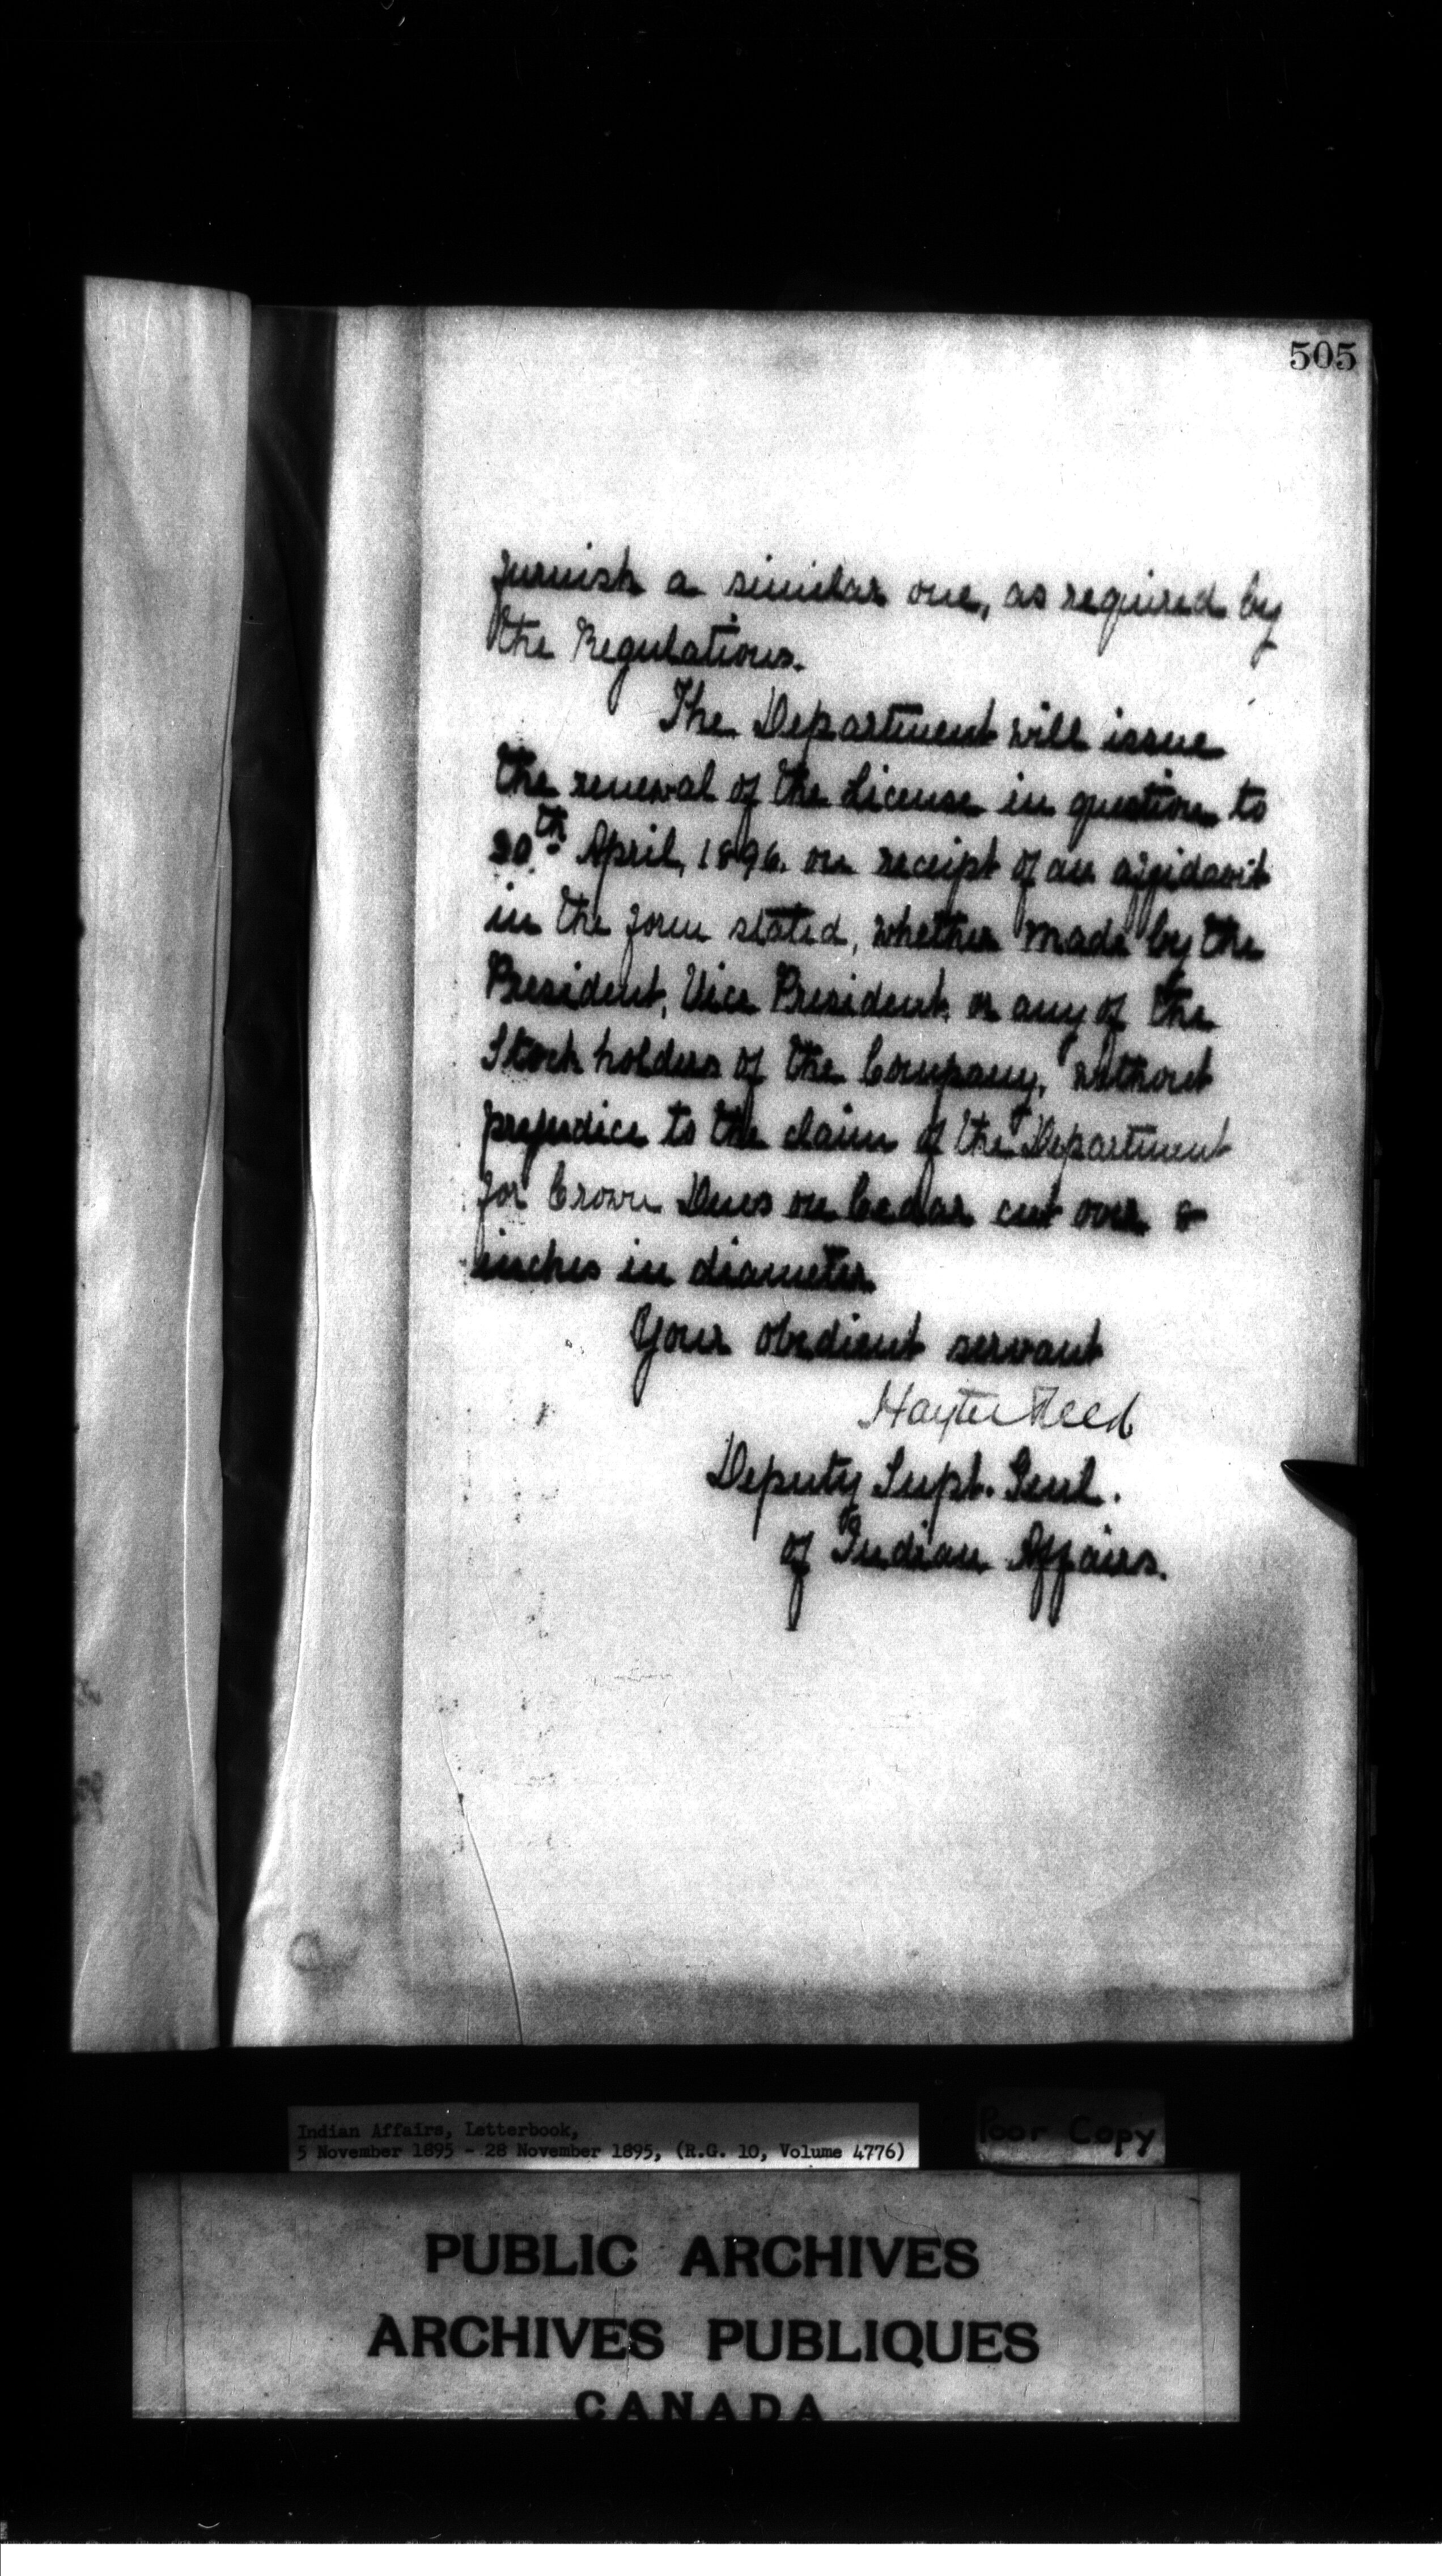 505
furnish a similar one, as required by
the Regulations.
The Department will issue
the renewal of the License in question to
30th April, 1896. on receipt of an affidavit
in the form stated, whether made by the
President, Vice President, or any of the
Stock holders of the Company, without
prejudice to the claim of the Department
for Crown Dues on Cedar cut over 8
inches in diameter
Your obedient servant
Hayter Reed
Deputy Supt. Genl.
of Indian Affairs.
Indian Affairs, Letterbook,
5 November 1895 - 28 November 1895, (R.G. 10, Volume 4776)
Poor Copy
PUBLIC ARCHIVES
ARCHIVES PUBLIQUES
CANADA